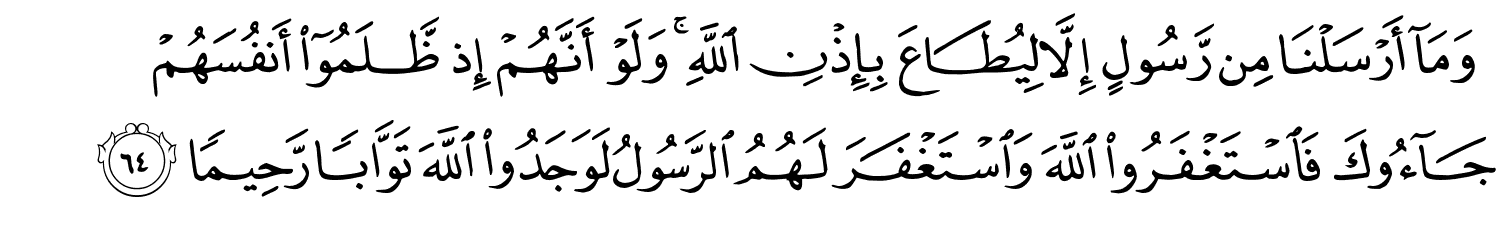 وَمَآ أَرْسَلْنَا مِن رَّسُولٍ إِلَّا لِيُطَاعَ بِإِذْنِ ٱللَّهِ ۚ وَلَوْ أَنَّهُمْ إِذ ظَّلَمُوٓا۟ أَنفُسَهُمْ
جَآءُوكَ فَٱسْتَغْفَرُوا۟ ٱللَّهَ وَٱسْتَغْفَرَ لَهُمُ ٱلرَّسُولُ لَوَجَدُوا۟ ٱللَّهَ تَوَّابًا رَّحِيمًا ٦٤